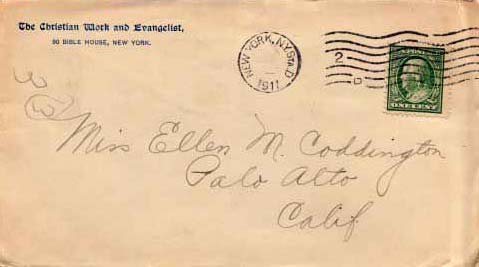 The Christian Work and Evangelist,
90 BIBLE HOUSE, NEW YORK.
NEW YORK, N.Y. STA. D
1911
2
D
ONE CENT
Miss Ellen M. Coddington
Palo Alto
Calif.